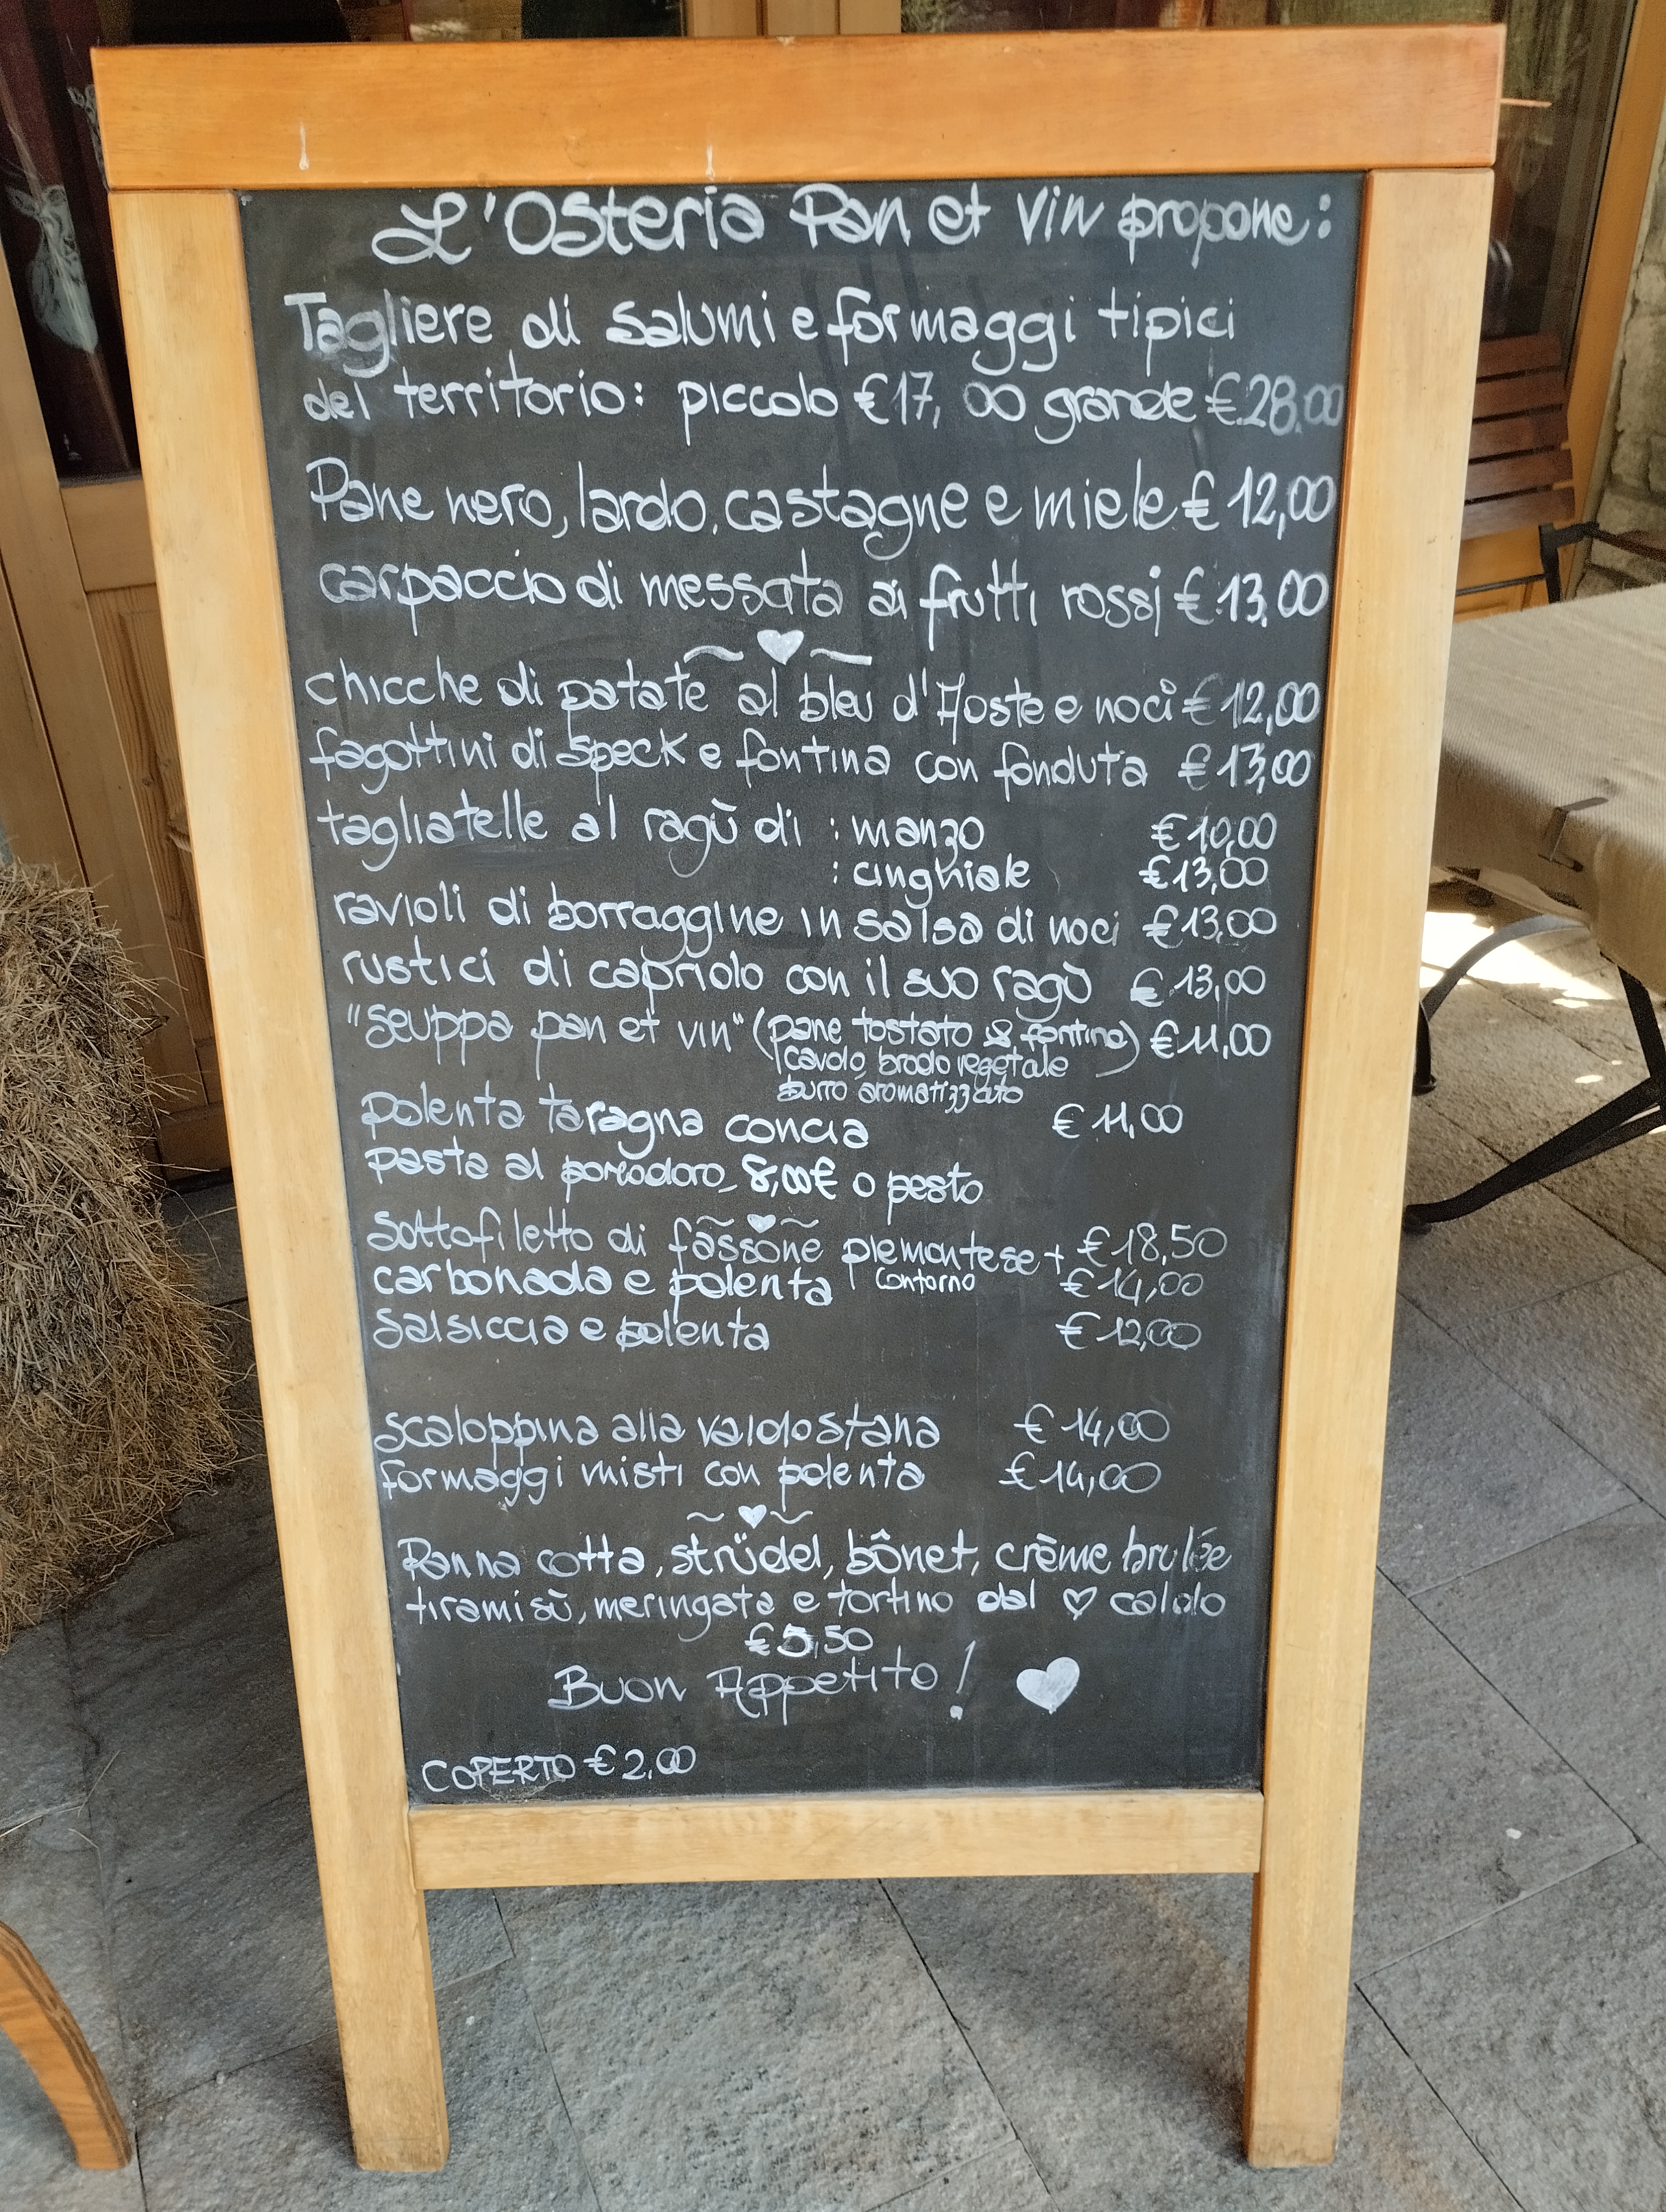 L'Osteria Pan et Vin propone:
Tagliere di salumi e formaggi tipici
del territorio: piccolo €17,00 grande €28.00
Pane nero, lardo, castagne e miele € 12,00
carpaccio di messata ai frutti rossi € 13.00
chicche di patate al bleu d'Aoste e noci € 12,00
fagottini di speck e fontina con fonduta € 13,00
tagliatelle al ragù di : manzo € 10,00
: cinghiale € 13,00
ravioli di borraggine in salsa di noci € 13,00
rustici di capriolo con il suo ragù € 13,00
"Seuppa pan et vin" (pane tostato & fontina) € 11,00
cavolo, brodo vegetale
burro aromatizzato
polenta taragna concia € 11,00
pasta al pomodoro 8,00€ o pesto
sottofiletto di fassone piemontese + € 18,50
contorno
carbonada e polenta € 14,00
Salsiccia e polenta € 12,00
scaloppina alla valdostana € 14,00
formaggi misti con polenta € 14,00
Panna cotta, strüdel, bônet, crème brulée
tiramisù, meringata e tortino dal ♡ caldo
€ 5,50
Buon Appetito! ♥
COPERTO € 2,00